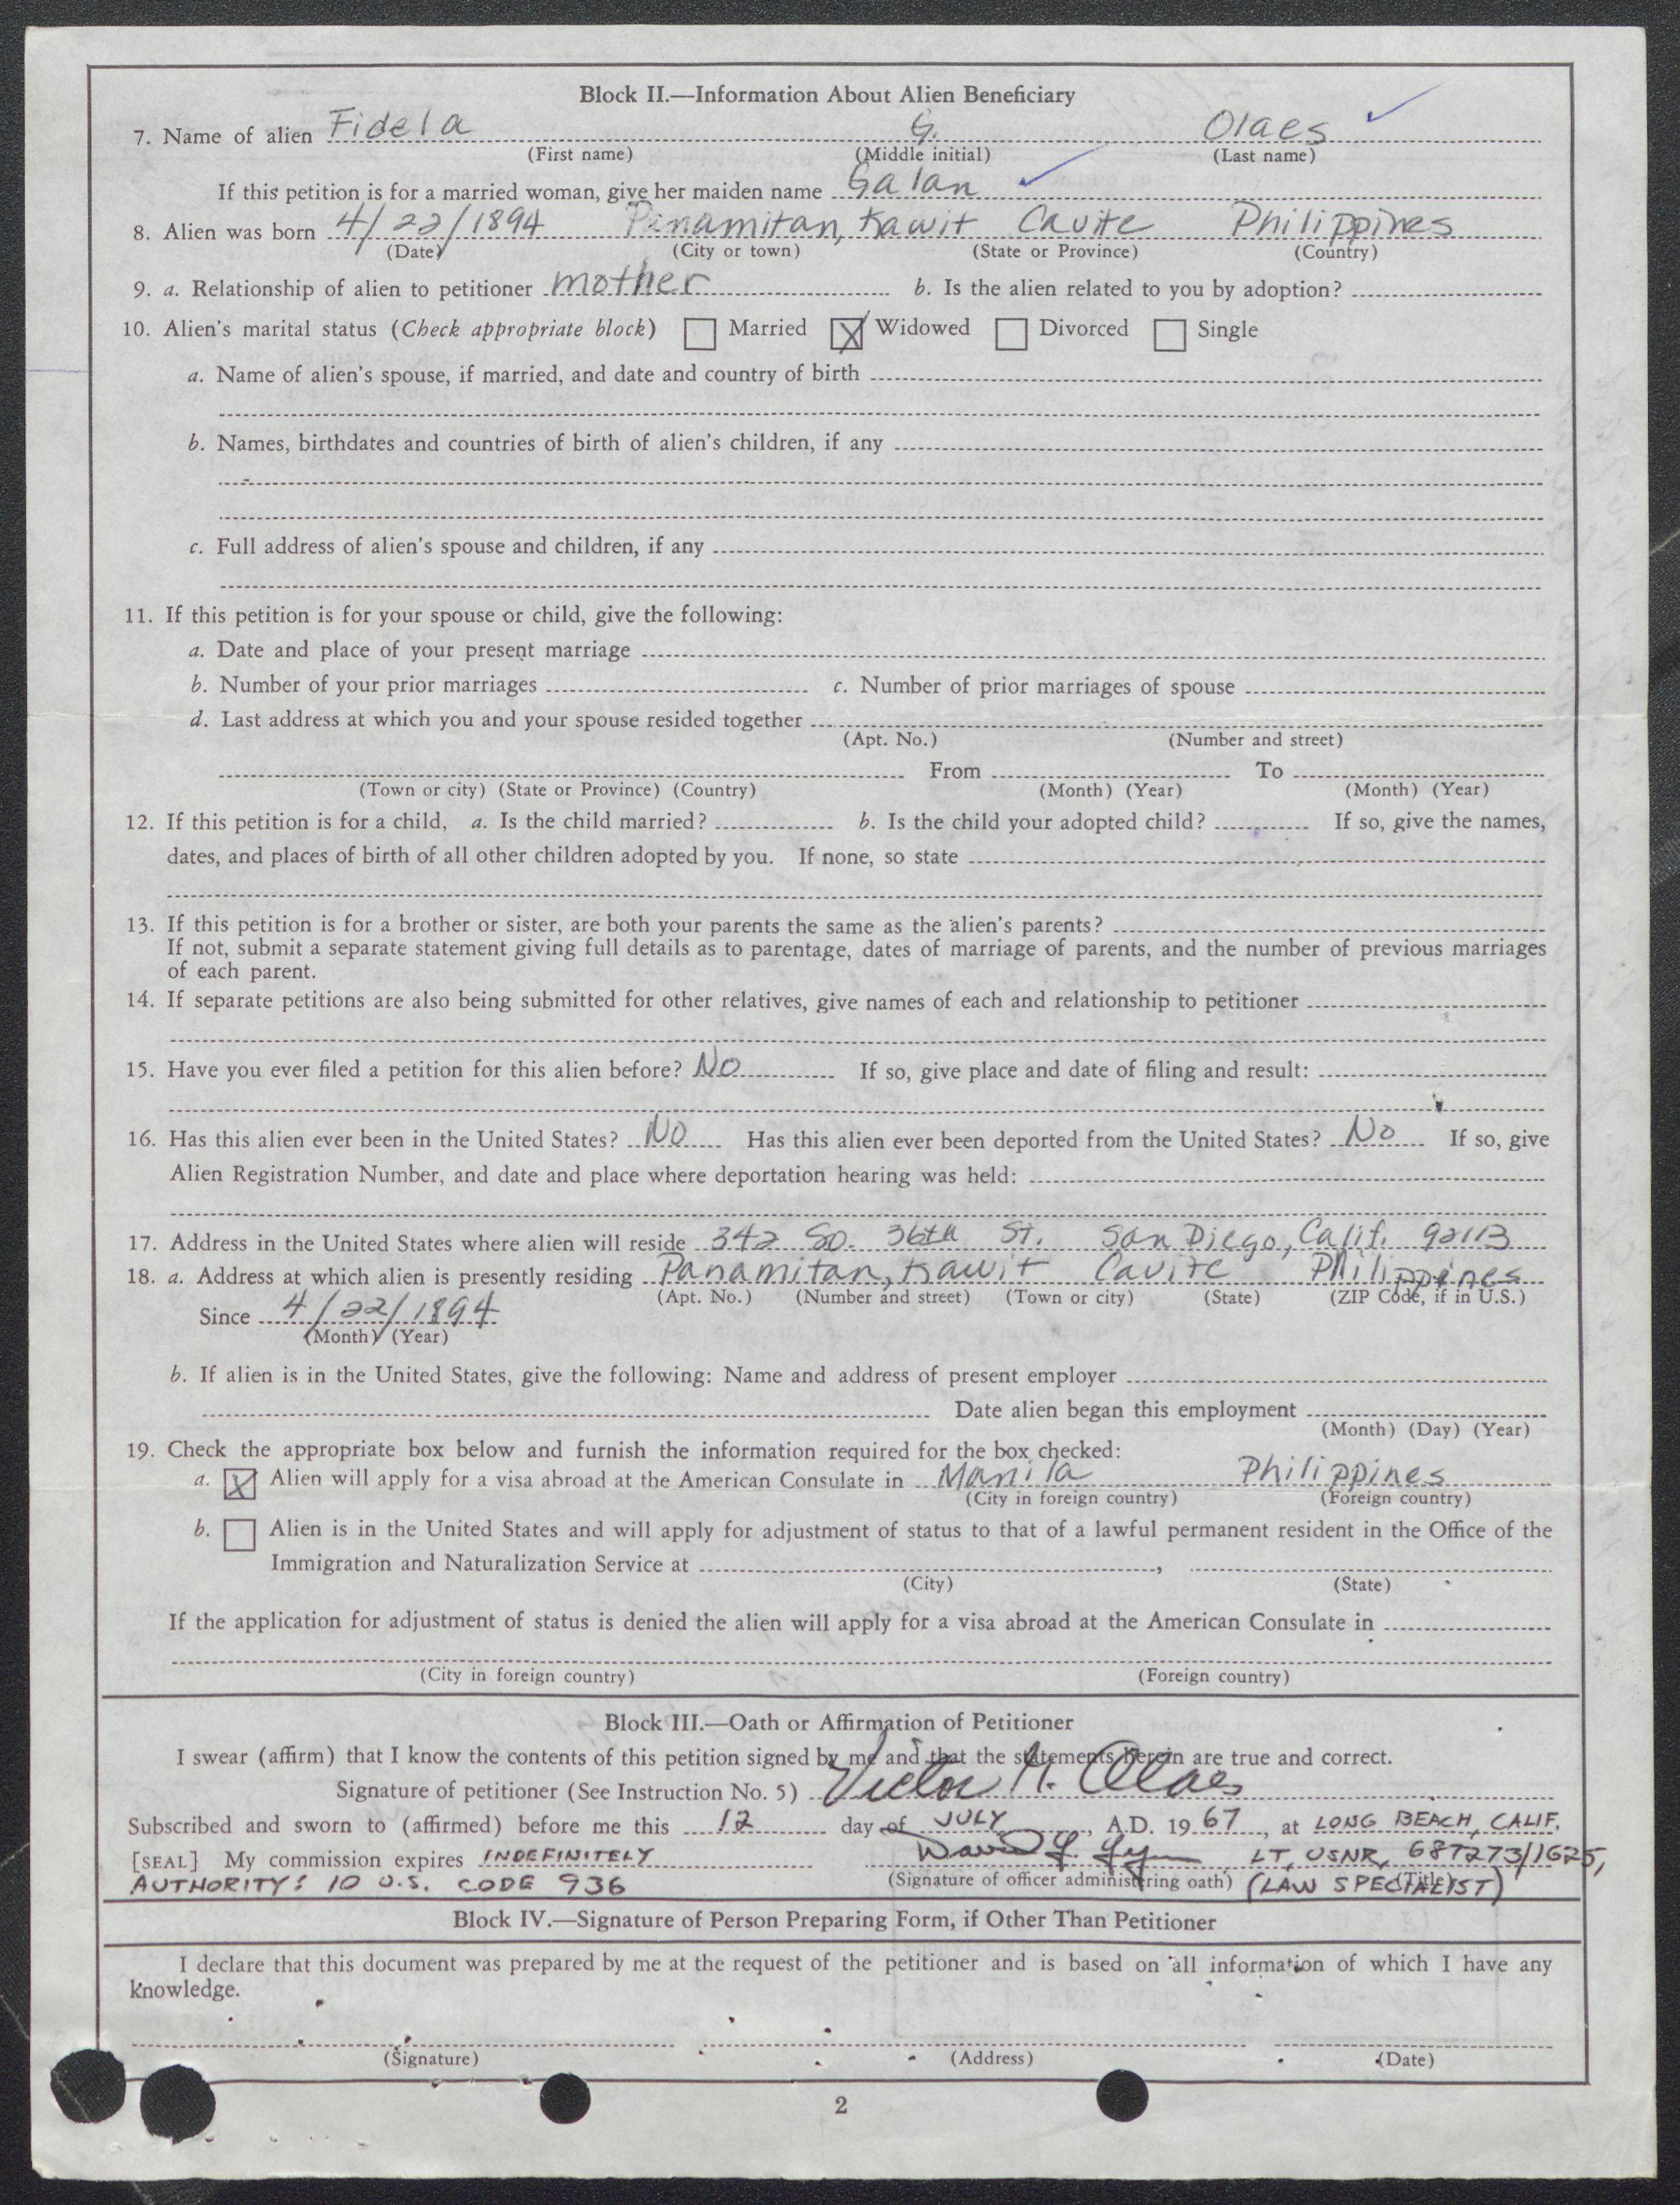 Block II.—Information About Alien Beneficiary
7. Name of alien Fidela G. Olaes
(First name) (Middle initial) (Last name)
If this petition is for a married woman, give her maiden name Galan
8. Alien was born 4/22/1894 Panamitan, Kawit Cavite Philippines
(Date) (City or town) (State or Province) (Country)
9. a. Relationship of alien to petitioner mother b. Is the alien related to you by adoption?
10. Alien's marital status (Check appropriate block) Married X Widowed Divorced Single
a. Name of alien's spouse, if married, and date and country of birth
b. Names, birthdates and countries of birth of alien's children, if any
c. Full address of alien's spouse and children, if any
11. If this petition is for your spouse or child, give the following:
a. Date and place of your present marriage
b. Number of your prior marriages c. Number of prior marriages of spouse
d. Last address at which you and your spouse resided together
(Apt. No.) (Number and street)
From To
(Town or city) (State or Province) (Country) (Month) (Year) (Month) (Year)
12. If this petition is for a child, a. Is the child married? b. Is the child your adopted child? If so, give the names,
dates, and places of birth of all other children adopted by you. If none, so state
13. If this petition is for a brother or sister, are both your parents the same as the alien's parents?
If not, submit a separate statement giving full details as to parentage, dates of marriage of parents, and the number of previous marriages
of each parent.
14. If separate petitions are also being submitted for other relatives, give names of each and relationship to petitioner
15. Have you ever filed a petition for this alien before? No If so, give place and date of filing and result:
16. Has this alien ever been in the United States? No Has this alien ever been deported from the United States? No If so, give
Alien Registration Number, and date and place where deportation hearing was held:
17. Address in the United States where alien will reside 342 So. 36th St. San Diego, Calif. 92113
18. a. Address at which alien is presently residing Panamitan, Kawit Cavite Philippines
(Apt. No.) (Number and street) (Town or city) (State) (ZIP Code, if in U.S.)
Since 4/22/1894
(Month) (Year)
b. If alien is in the United States, give the following: Name and address of present employer
Date alien began this employment
(Month) (Day) (Year)
19. Check the appropriate box below and furnish the information required for the box checked:
a. X Alien will apply for a visa abroad at the American Consulate in Manila Philippines
(City in foreign country) (Foreign country)
b. Alien is in the United States and will apply for adjustment of status to that of a lawful permanent resident in the Office of the
Immigration and Naturalization Service at ,
(City) (State)
If the application for adjustment of status is denied the alien will apply for a visa abroad at the American Consulate in
(City in foreign country) (Foreign country)
Block III.—Oath or Affirmation of Petitioner
I swear (affirm) that I know the contents of this petition signed by me and that the statements herein are true and correct.
Signature of petitioner (See Instruction No. 5) Victor G. Olaes
Subscribed and sworn to (affirmed) before me this 12 day of JULY, A.D. 19 67, at LONG BEACH, CALIF.
[SEAL] My commission expires INDEFINITELY LT, USNR, 687273/1625,
AUTHORITY: 10 U.S. CODE 936 (Signature of officer administering oath) (Title) (LAW SPECIALIST)
Block IV.—Signature of Person Preparing Form, if Other Than Petitioner
I declare that this document was prepared by me at the request of the petitioner and is based on all information of which I have any
knowledge.
(Signature) (Address) (Date)
2